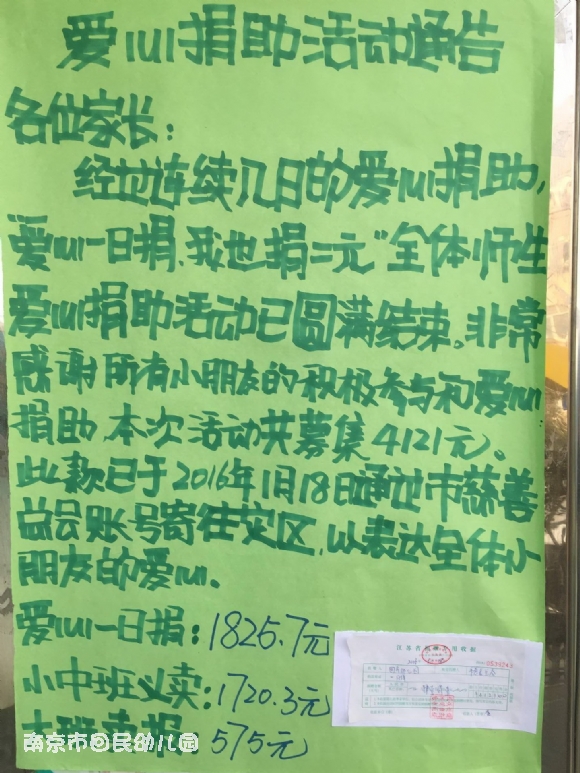 爱心捐助活动通告
各位家长：
经过连续几日的爱心捐助，
"爱心一日捐、我也捐一元"全体师生
爱心捐助活动已圆满结束。非常
感谢所有小朋友的积极参与和爱心
捐助，本次活动共募集4121元。
此款已于2016年1月18日通过市慈善
总会账号寄往灾区，以表达全体小
朋友的爱心。
爱心一日捐：1825.7元
小中班义卖：1720.3元
大班卖报：575元
江苏省
南京市回民幼儿园